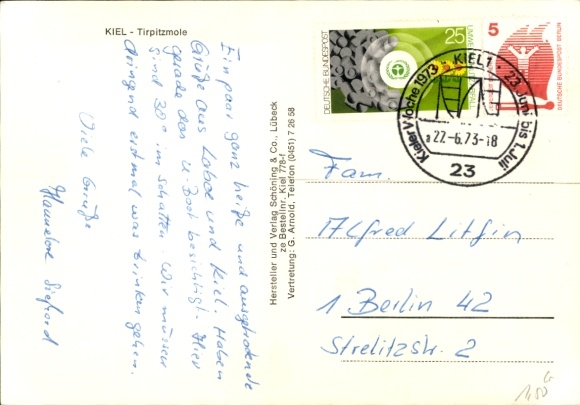 KIEL - Tirpitzmole
Ein paar ganz heiße und ausgetrocknete
Grüße aus Laboe und Kiel. Haben
gerade das U-Boot besichtigt. Hier
sind 38° im Schatten. Wir müssen
dringend erst mal was trinken gehen.
Viele Grüße
Hannelore
Hersteller und Verlag Schöning & Co., Lübeck
ze Bestellnr. Kiel 778-f
Vertretung: G. Arnold, Telefon (0451) 7 26 58
DEUTSCHE BUNDESPOST
25
5
DEUTSCHE BUNDESPOST BERLIN
KIEL 1
Kieler Woche 1973 • 23. Juni bis 1. Juli
a 22.-6.73-18
23
Fam.
Alfred Litfin
1 Berlin 42
Strelitzstr. 2